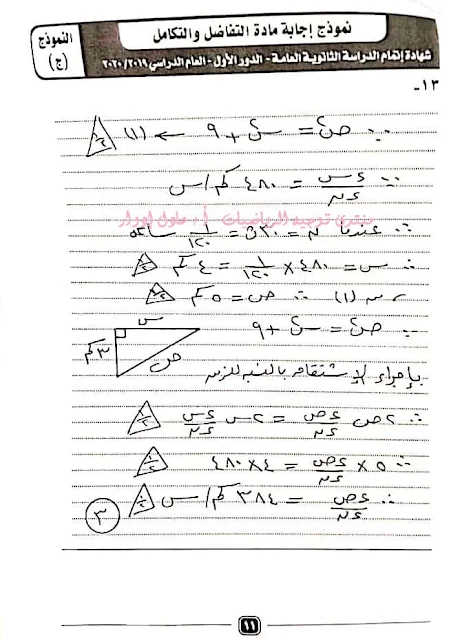 نموذج إجابة مادة التفاضل والتكامل
النموذج (ج)
شهادة إتمام الدراسة الثانوية العامة - الدور الأول - العام الدراسي ٢٠١٩/ ٢٠٢٠
١٣-
∵ ص² = س² + ٩ ← (١) ½
∵ ءس/ءن = ٤٨٠ كم/س
منتدى توجيه الرياضيات أ. عادل إدوار
∴ عندما ن = ٣٠ ث = ١/١٢٠ ساعة
∴ س = ٤٨٠ × ١/١٢٠ = ٤ كم ½
، من (١) ∴ ص = ٥ كم ½
∵ ص² = س² + ٩
س
٣ كم
ص
بإجراء الاشتقاق بالنسبة للزمن
∴ ٢ص ءص/ءن = ٢س ءس/ءن ½
∴ ٥ × ءص/ءن = ٤ × ٤٨٠ ½
∴ ءص/ءن = ٣٨٤ كم/س ½
٣
١١